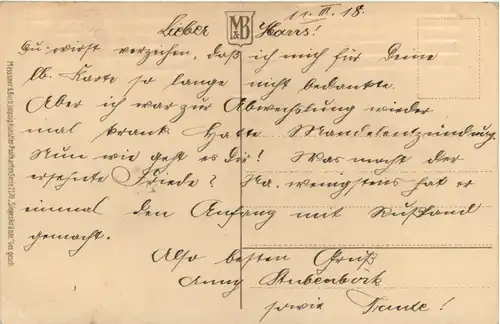 11. III. 18.
Lieber Hans!
Du wirst verzeihen, daß ich mich für Deine
lb. Karte so lange nicht bedankte.
Aber ich war zur Abwechslung wieder
mal krank. Hatte Mandelentzündung.
Nun wie geht es Dir! Was macht der
ersehnte Friede? Na, wenigstens hat er
einmal den Anfang mit Rußland
gemacht.
Also besten Gruß
Anny Stubenböck
sowie Tante!
M&B
Meissner & Buch, Leipzig Künstler-Postkarten Serie